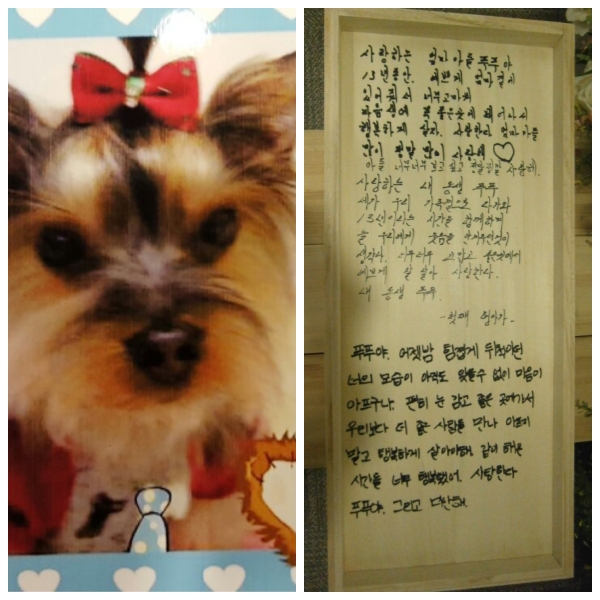 사랑하는 엄마 아들 푸푸야
13년동안 예쁘게 엄마 곁에
있어줘서 너무 고마워
다음생에 꼭 좋은곳에 태어나서
행복하게 살자. 사랑한다 엄마 아들
많이 정말 많이 사랑해 ♡
아들 너무너무 보고 싶고 정말정말 사랑해.
사랑하는 내 동생 푸푸
네가 우리 가족으로 와
13년이라는 시간을 함께하며
늘 우리에게 웃음을 안겨주었던
생각나. 너무너무 고맙고 좋은곳에서
예쁘게 잘 살아 사랑한다.
내 동생 푸푸
- 첫째 엄마가 -
푸푸야. 어젯밤 힘겹게 뒤척이던
너의 모습이 아직도 잊을수 없이 마음이
아프구나. 편히 눈 감고 좋은 곳에가서
우리보다 더 좋은 사람들 만나 아프지
말고 행복하게 살아야해. 같이 해온
시간들 너무 행복했어. 사랑한다
푸푸야. 그리고 미안해.